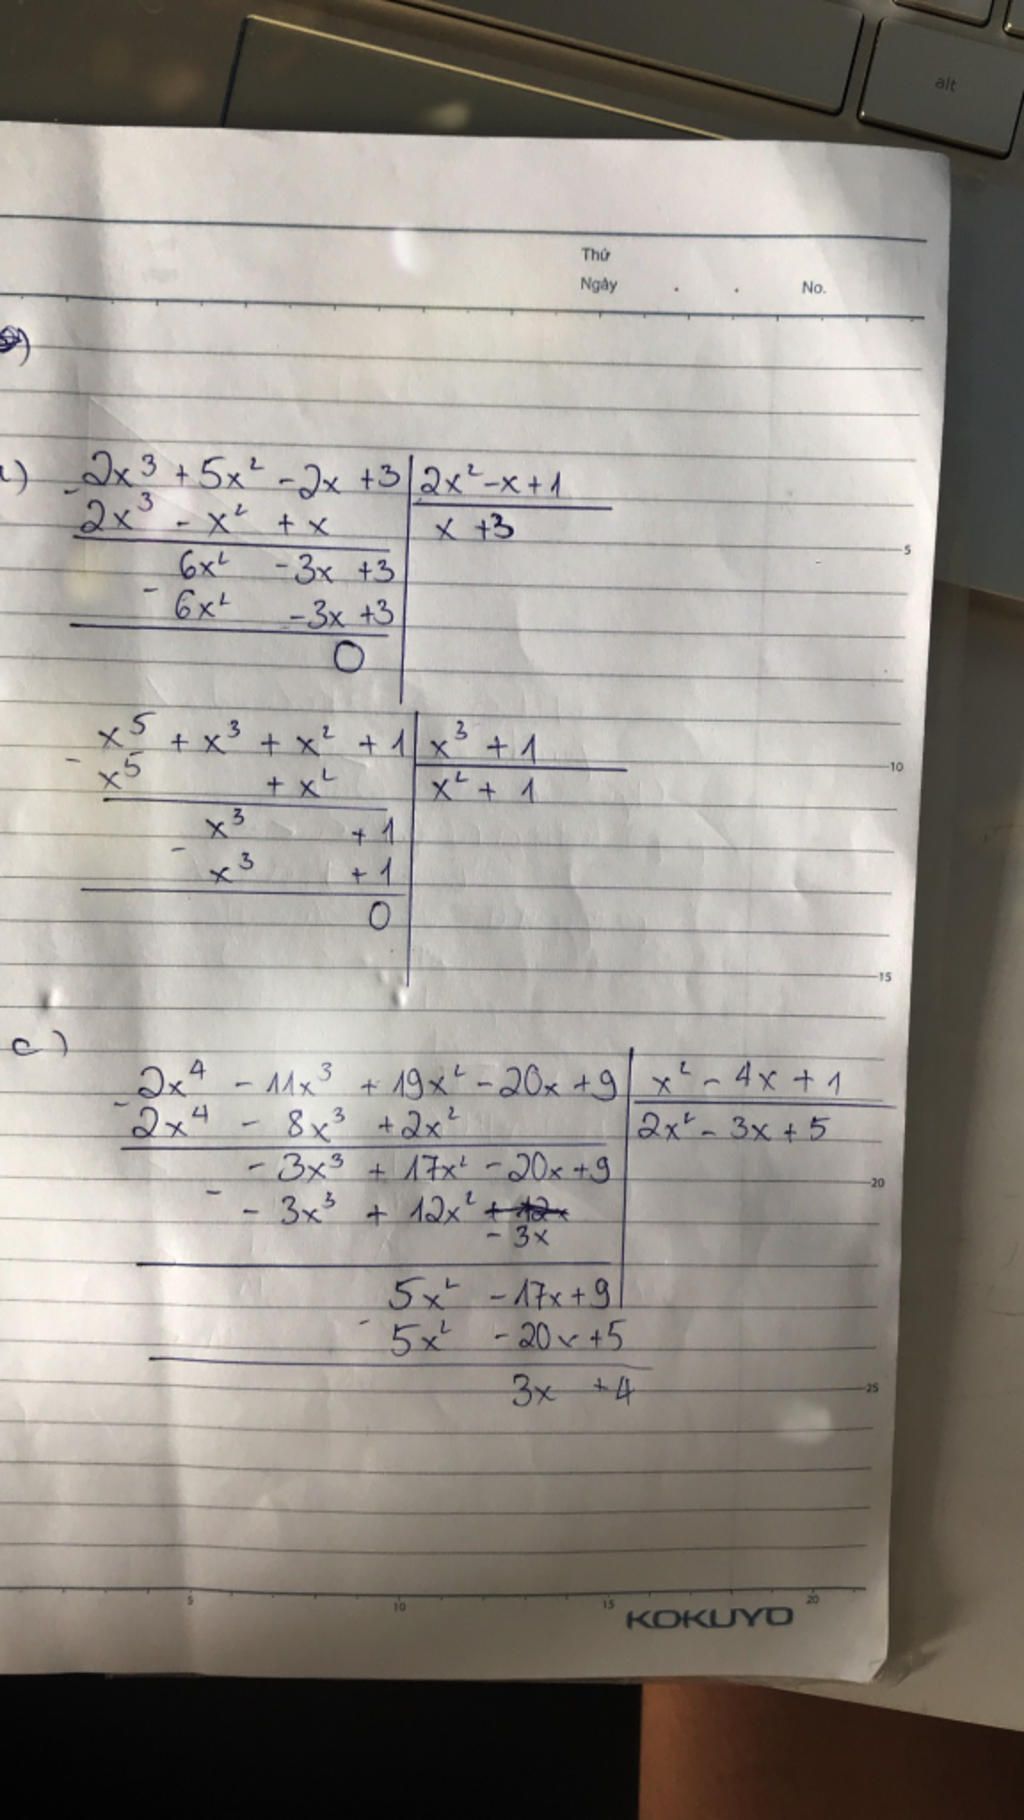 alt
Thứ
Ngày . . No.
)
2x³ + 5x² - 2x + 3 | 2x² - x + 1
- 2x³ - x² + x | x + 3
6x² - 3x + 3
- 6x² - 3x + 3
0
5
x⁵ + x³ + x² + 1 | x³ + 1
- x⁵ + x² | x² + 1
10
x³ + 1
- x³ + 1
0
15
c)
2x⁴ - 11x³ + 19x² - 20x + 9 | x² - 4x + 1
- 2x⁴ - 8x³ + 2x² | 2x² - 3x + 5
- 3x³ + 17x² - 20x + 9
20
- - 3x³ + 12x² + 12x
- 3x
5x² - 17x + 9
- 5x² - 20x + 5
3x + 4
25
5 10 15 20
KOKUYO